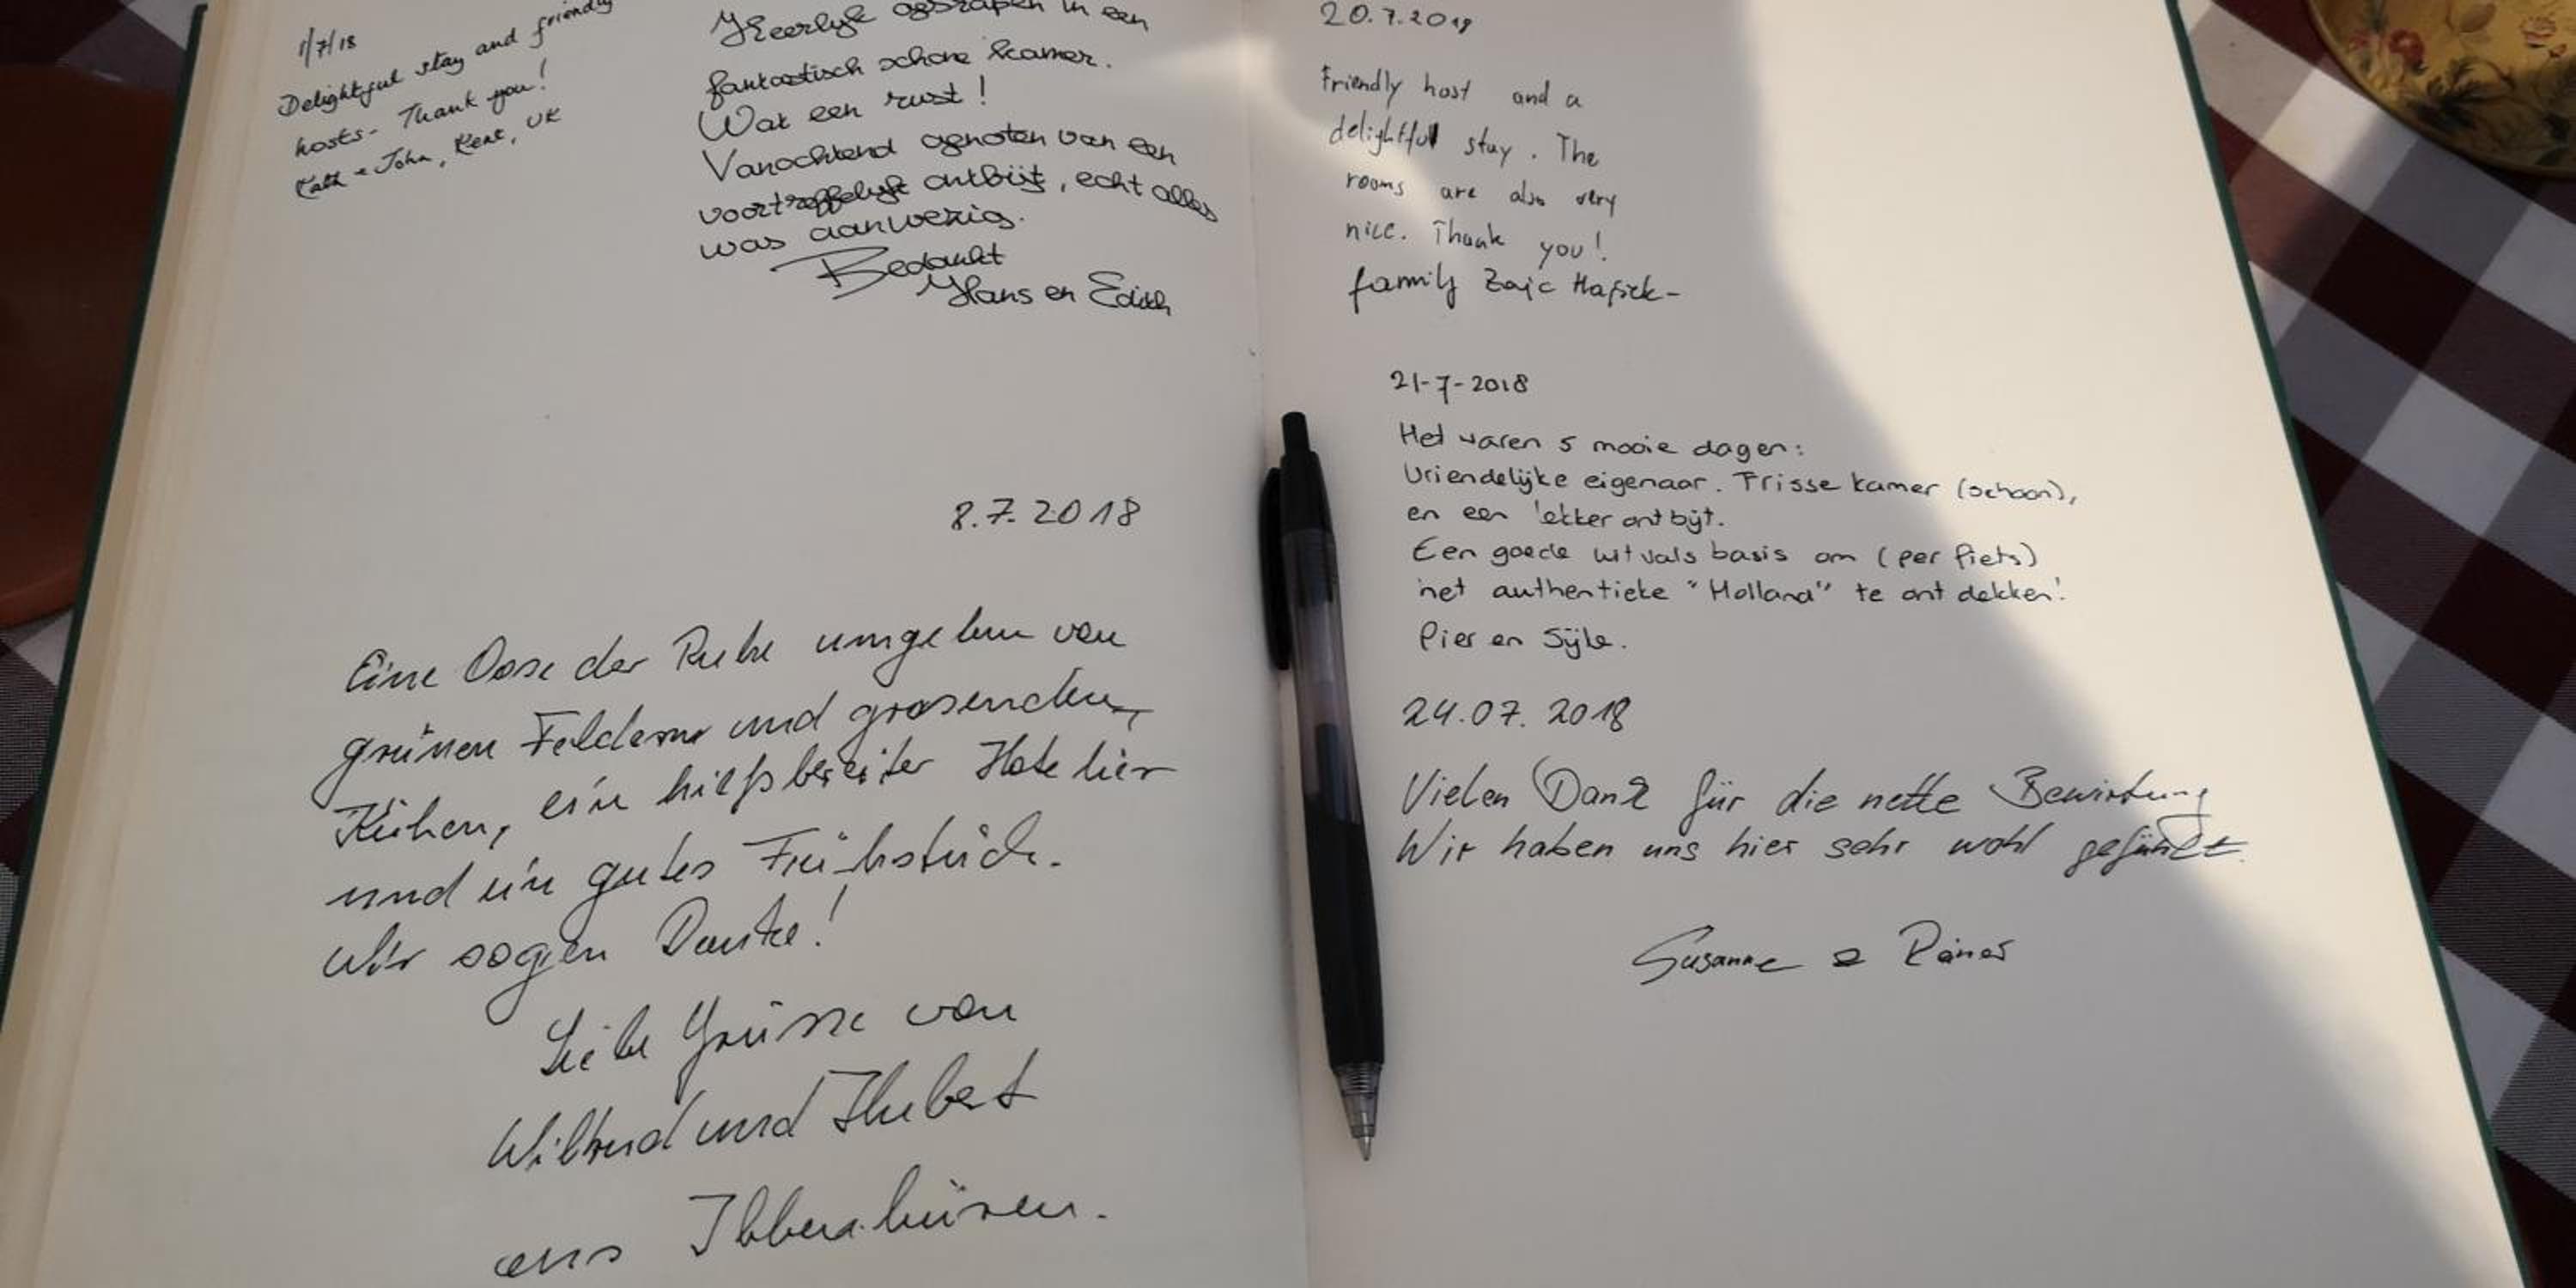 1/7/18
Delightful stay and friendly
hosts - Thank you!
John, Kent, UK
Heerlijk geslapen in een
fantastisch schone kamer.
Wat een rust!
Vanochtend genoten van een
voortreffelijk ontbijt, echt alles
was aanwezig.
Bedankt
Hans en Edith
8.7.2018
Eine Oase der Ruhe umgeben von
grünen Feldern und grasenden
Kühen, ein hilfsbereiter Hotelier
und ein gutes Frühstück.
Wir sagen Danke!
Liebe Grüsse von
Wiltrud und Hubert
aus Ibbenbüren.
20.7.2018
Friendly host and a
delightful stay. The
rooms are also very
nice. Thank you!
family Zajc
21-7-2018
Het waren 5 mooie dagen:
Vriendelijke eigenaar. Frisse kamer (schoon),
en een lekker ontbijt.
Een goede uitvals basis om (per fiets)
het authentieke "Holland" te ontdekken!
Pier en
24.07.2018
Vielen Dank für die nette Bewirtung
Wir haben uns hier sehr wohl gefühlt.
Susanne & Rainer